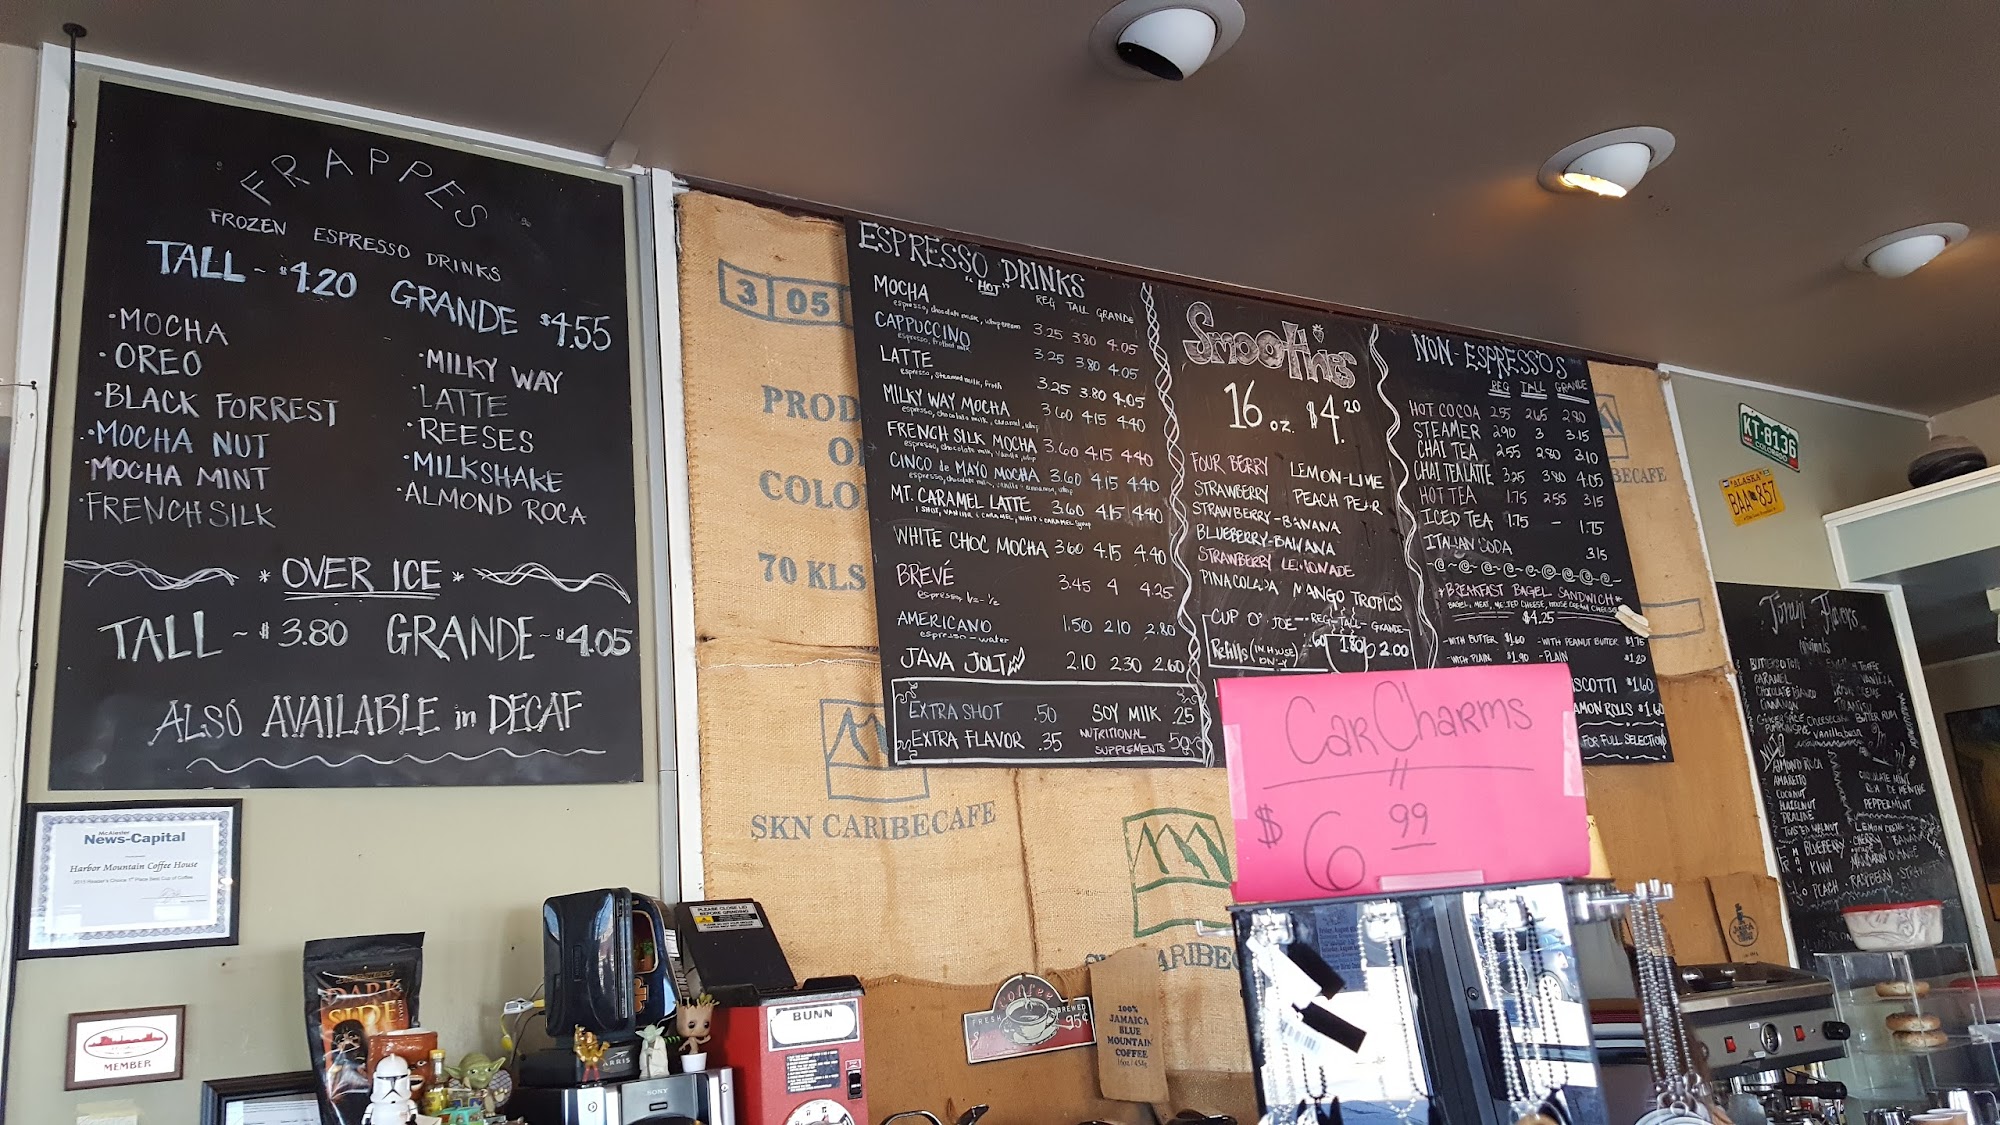 FRAPPES
FROZEN ESPRESSO DRINKS
TALL ~ $4.20 GRANDE $4.55
·MOCHA
·OREO
·BLACK FORREST
·MOCHA NUT
·MOCHA MINT
·FRENCH SILK
·MILKY WAY
·LATTE
·REESES
·MILKSHAKE
·ALMOND ROCA
* OVER ICE *
TALL ~ $3.80 GRANDE ~ $4.05
ALSO AVAILABLE in DECAF
McAlester
News-Capital
Harbor Mountain Coffee House
MEMBER
3 05
PROD
COLO
70 KLS
SKN CARIBECAFE
ESPRESSO DRINKS
"HOT"
REG TALL GRANDE
MOCHA 3.25 3.80 4.05
espresso, chocolate milk, whip cream
CAPPUCCINO 3.25 3.80 4.05
espresso, frothed milk
LATTE 3.25 3.80 4.05
espresso, steamed milk, froth
MILKY WAY MOCHA 3.60 4.15 4.40
espresso, chocolate milk, caramel, whip
FRENCH SILK MOCHA 3.60 4.15 4.40
espresso, chocolate milk, vanilla, whip
CINCO de MAYO MOCHA 3.60 4.15 4.40
MT. CARAMEL LATTE 3.60 4.15 4.40
WHITE CHOC MOCHA 3.60 4.15 4.40
BREVÉ 3.45 4 4.25
espresso, ½ - ½
AMERICANO 1.50 2.10 2.80
espresso - water
JAVA JOLT 2.10 2.30 2.60
EXTRA SHOT .50 SOY MIlK .25
EXTRA FLAVOR .35 NUTRITIONAL SUPPLEMENTS .50
SMOOTHIES
16 oz. $4.20
FOUR BERRY LEMON-LIME
STRAWBERRY PEACH PEAR
STRAWBERRY-BANANA
BLUEBERRY-BANANA
STRAWBERRY LEMONADE
PINACOLADA MANGO TROPICS
CUP O' JOE - REG - TALL - GRANDE -
Refills (IN HOUSE ONLY) .60 1.80 2.00
NON-ESPRESSOS
REG TALL GRANDE
HOT COCOA 2.55 2.65 2.80
STEAMER 2.90 3 3.15
CHAI TEA 2.55 2.80 3.10
CHAI TEA LATTE 3.25 3.80 4.05
HOT TEA 1.75 2.55 3.15
ICED TEA 1.75 — 1.75
ITALIAN SODA 3.15
*BREAKFAST BAGEL SANDWICH*
BAGEL, MEAT, MELTED CHEESE, HOUSE CREAM CHEESE
$4.25
-WITH BUTTER $1.60 -WITH PEANUT BUTTER $1.75
-WITH PLAIN $1.90 -PLAIN $1.20
SCOTTI $1.60
AMON ROLLS $1.60
FOR FULL SELECTION
Car Charms
$6.99
KT-8136
COLORADO
ALASKA
BAA 857
BECAFE
Torani Flavors
CARAMEL
CINNAMON
VANILLA
BUTTER RUM
ALMOND ROCA
AMARETTO
COCONUT
HAZELNUT
PRALINE
TOASTED WALNUT
CHOCOLATE MINT
PEPPERMINT
BLUEBERRY
CHERRY
KIWI
PEACH
RASPBERRY
DARK
SIDE
PLEASE CLOSE LID
BEFORE GRINDING
BUNN
SONY
Coffee
FRESH BREWED
95¢
100%
JAMAICA
BLUE
MOUNTAIN
COFFEE
ARIBEC